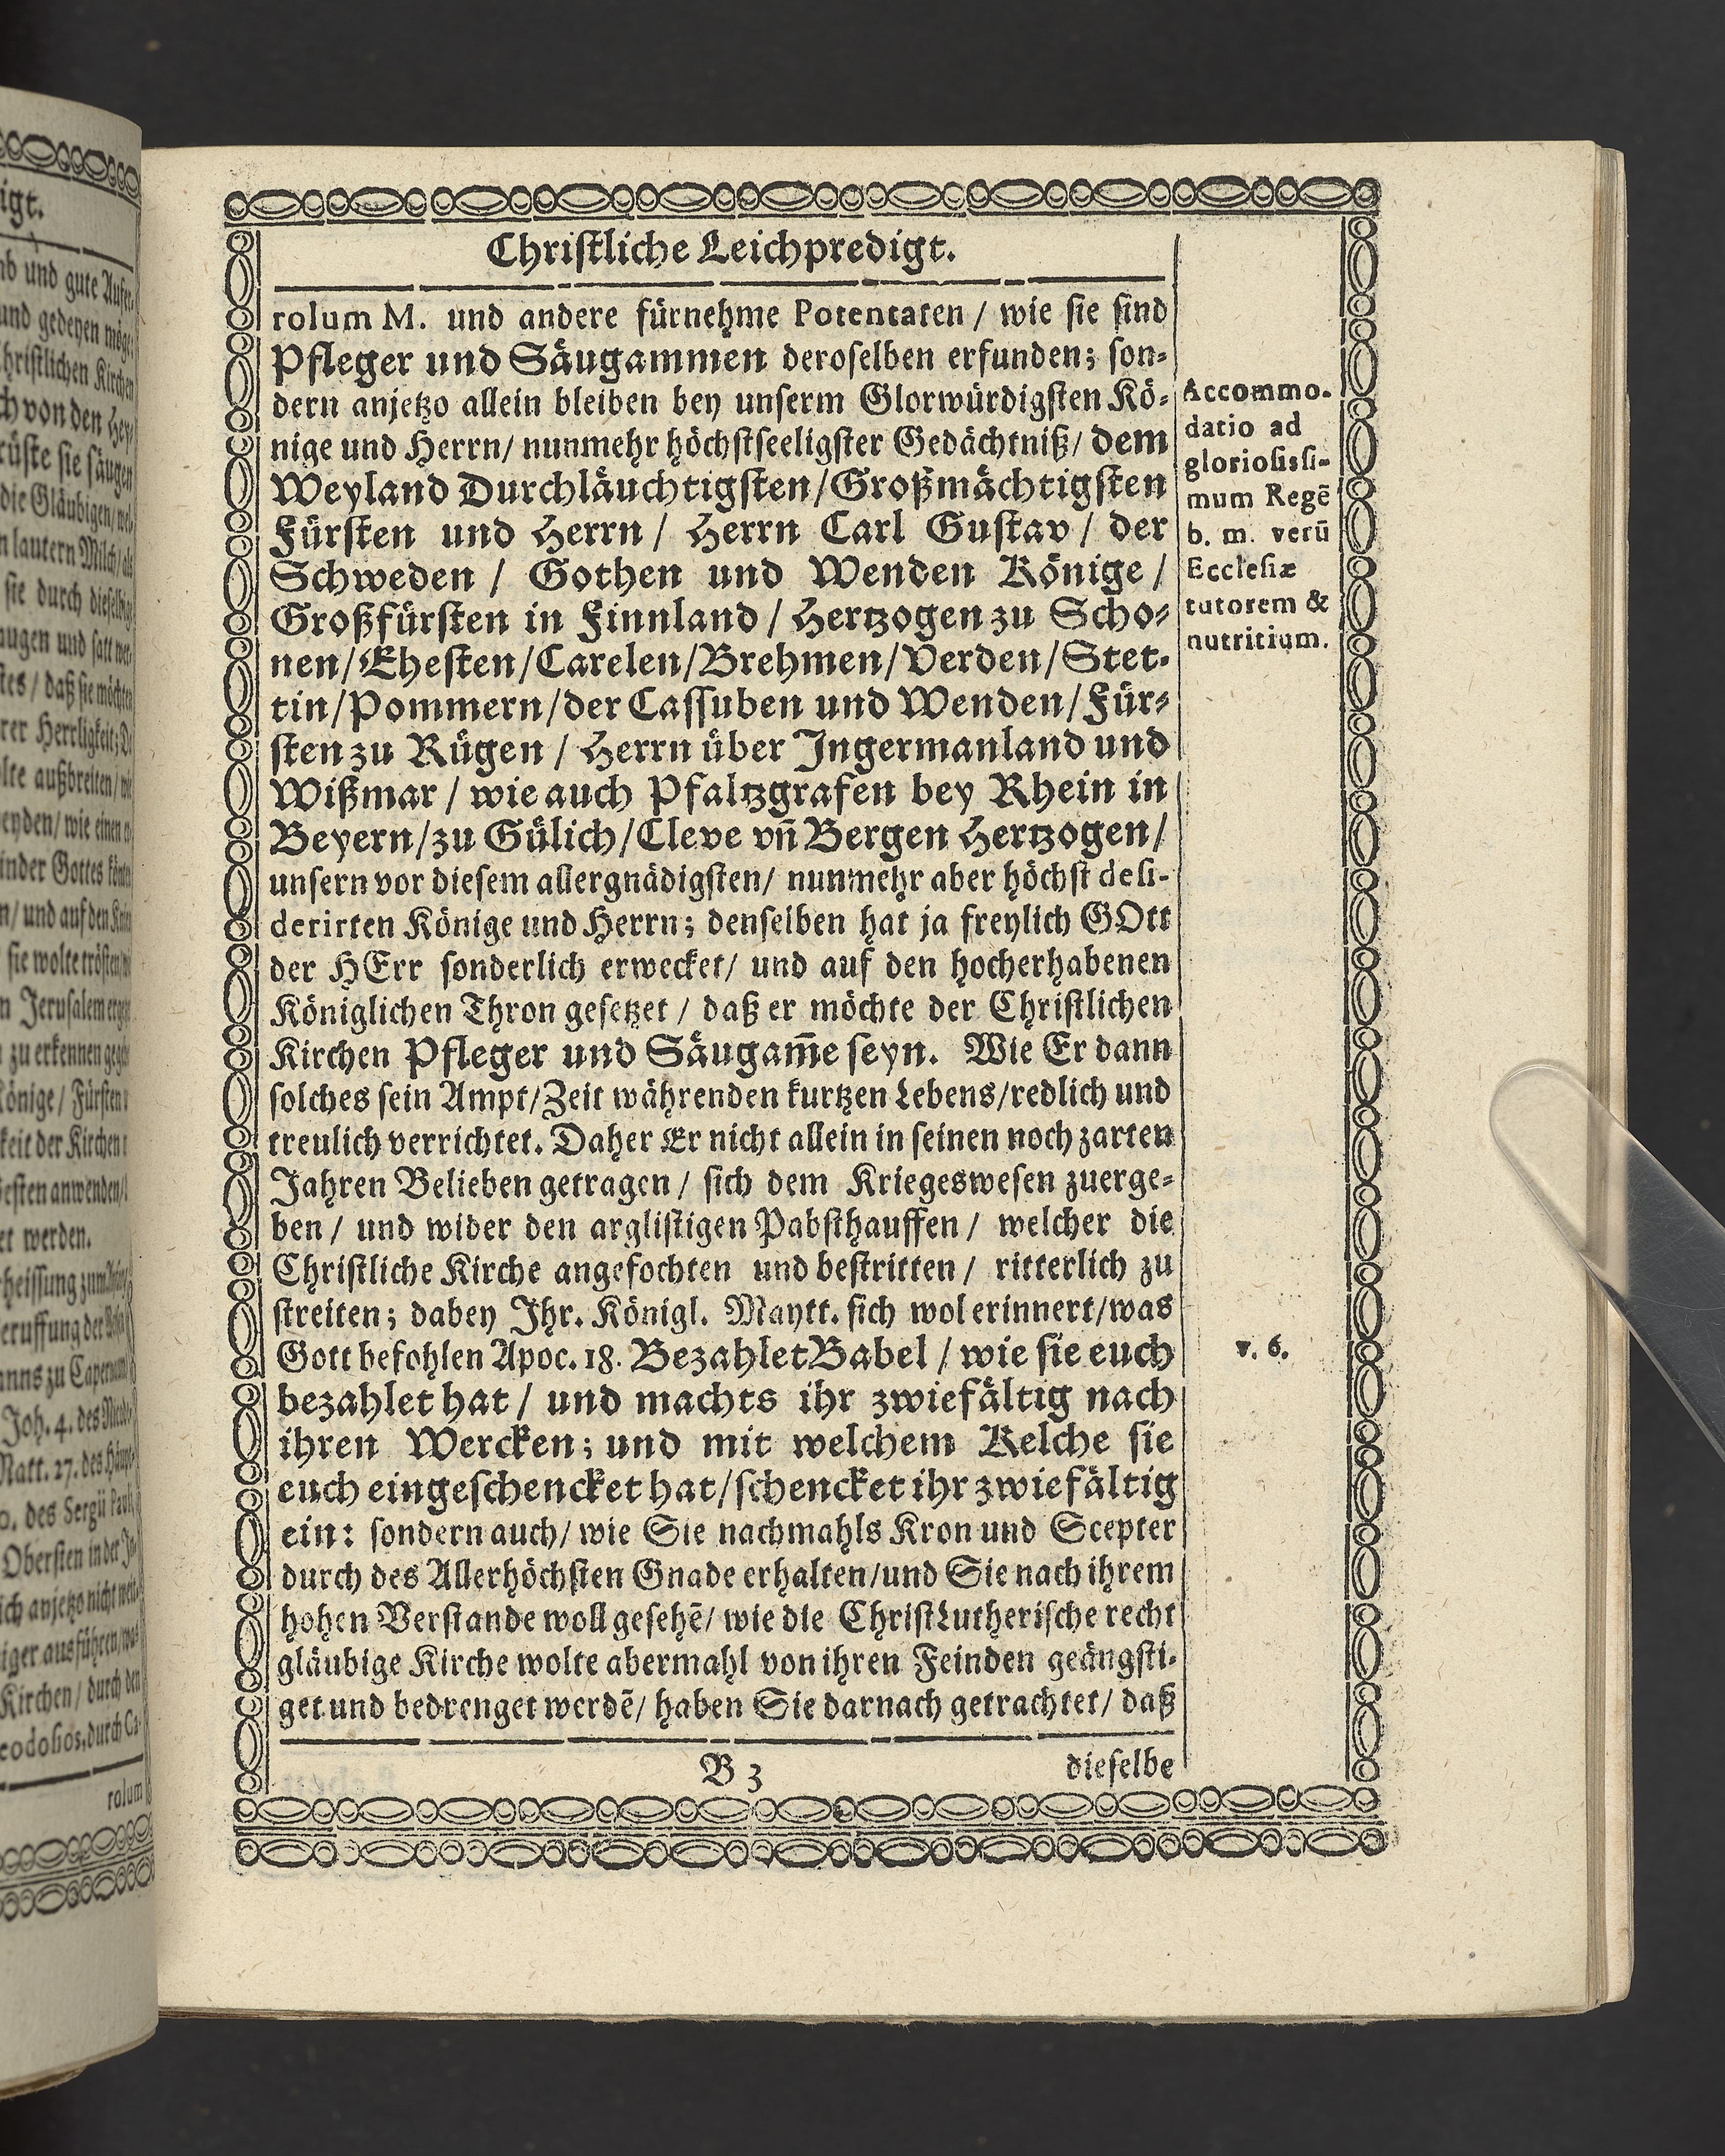 Christliche Leichpredigt.
rolum M. und andere fürnehme Potentaten / wie sie sind
Pfleger und Säugammen deroselben erfunden; son-
dern anjetzo allein bleiben bey unserm Glorwürdigsten Kö-
nige und Herrn/ nunmehr höchstseeligster Gedächtniß/ dem
Weyland Durchläuchtigsten/Großmächtigsten
Fürsten und Herrn / Herrn Carl Gustav / der
Schweden / Gothen und Wenden Könige /
Großfürsten in Finnland / Hertzogen zu Scho-
nen/Ehesten/Carelen/Brehmen/Verden/Stet-
tin/Pommern/der Cassuben und Wenden/Für-
sten zu Rügen / Herrn über Ingermanland und
Wißmar / wie auch Pfaltzgrafen bey Rhein in
Beyern/zu Gülich/Cleve vñ Bergen Hertzogen/
unsern vor diesem allergnädigsten/ nunmehr aber höchst desi-
derirten Könige und Herrn; denselben hat ja freylich GOtt
der HErr sonderlich erwecket/ und auf den hocherhabenen
Königlichen Thron gesetzet / daß er möchte der Christlichen
Kirchen Pfleger und Säugam̃e seyn. Wie Er dann
solches sein Ampt/Zeit währenden kurtzen Lebens/redlich und
treulich verrichtet. Daher Er nicht allein in seinen noch zarten
Jahren Belieben getragen / sich dem Kriegeswesen zuerge-
ben / und wider den arglistigen Pabsthauffen / welcher die
Christliche Kirche angefochten und bestritten / ritterlich zu
streiten; dabey Ihr. Königl. Maytt. sich wol erinnert/was
Gott befohlen Apoc. 18. Bezahlet Babel / wie sie euch
bezahlet hat / und machts ihr zwiefältig nach
ihren Wercken; und mit welchem Kelche sie
euch eingeschencket hat/schencket ihr zwiefältig
ein: sondern auch/ wie Sie nachmahls Kron und Scepter
durch des Allerhöchsten Gnade erhalten/und Sie nach ihrem
hohen Verstande woll gesehẽ/ wie die ChristLutherische recht
gläubige Kirche wolte abermahl von ihren Feinden geängsti-
get und bedrenget werdẽ/ haben Sie darnach getrachtet/ daß
B 3
dieselbe
Accommo-
datio ad
gloriosissi-
mum Regẽ
b. m. verũ
Ecclesiæ
tutorem &
nutritium.
v. 6.